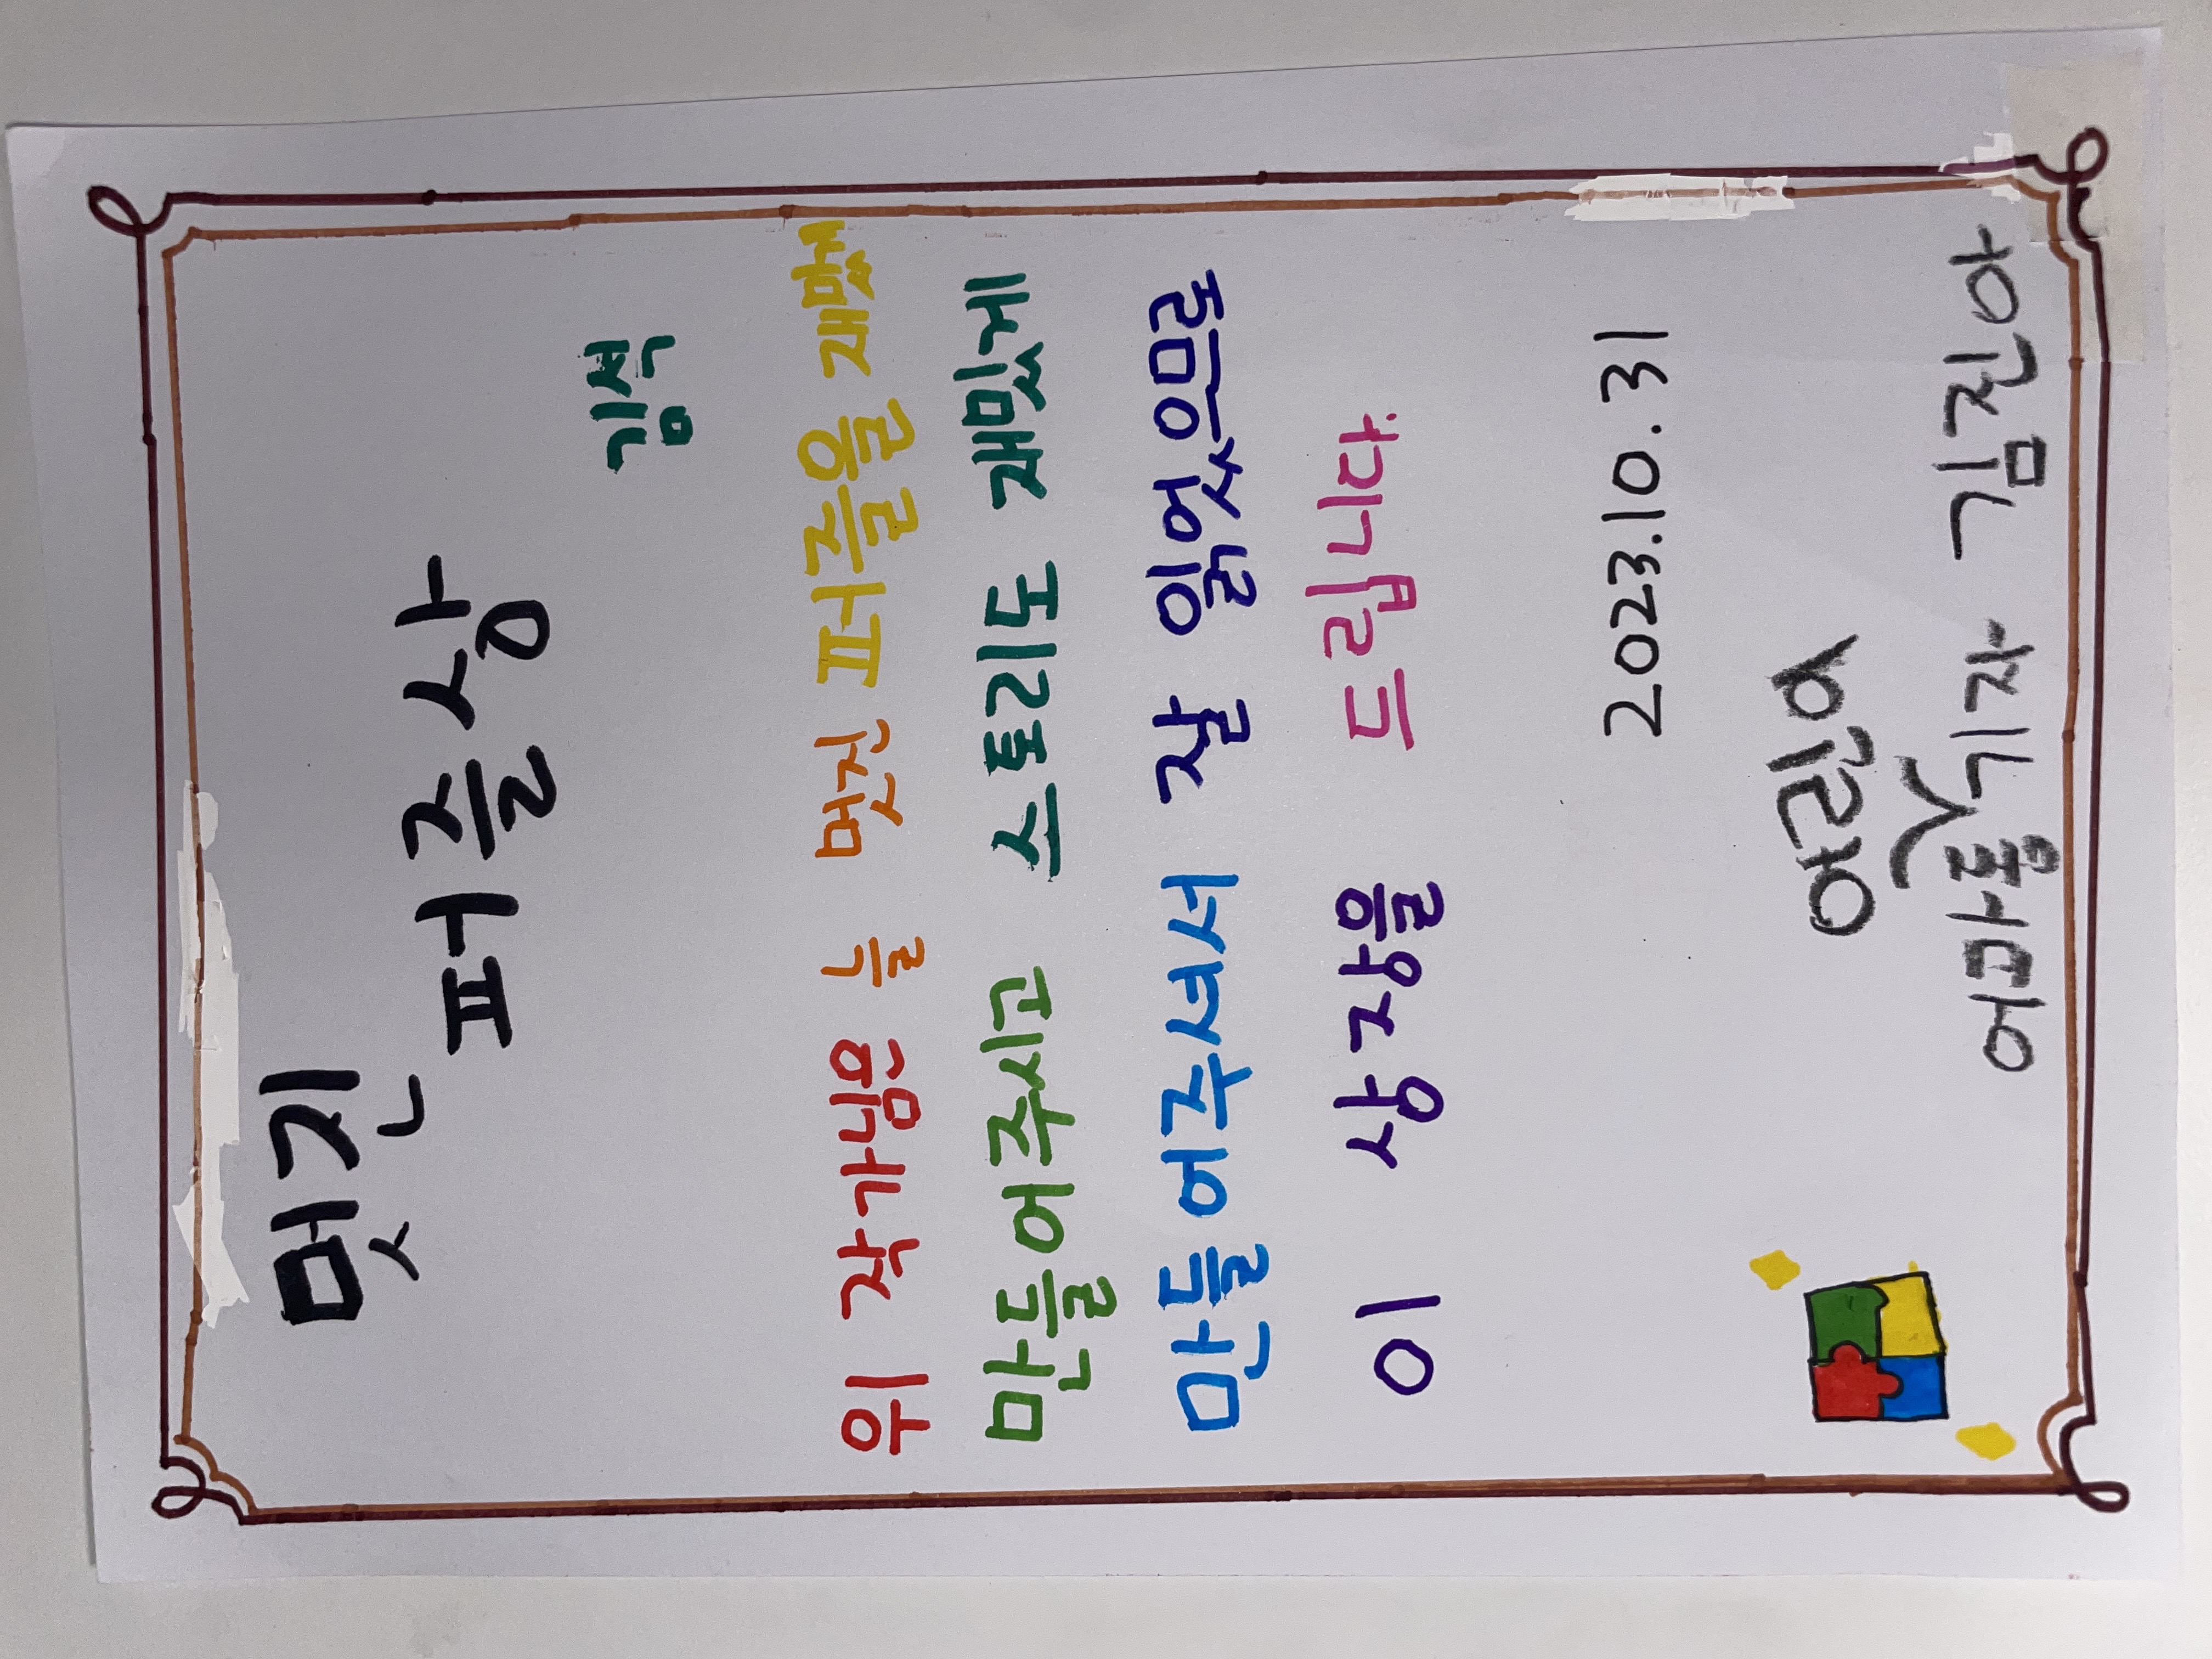 멋진
퍼즐상
김석
위 작가님은 늘 멋진 퍼즐을 재밌게
만들어주시고 스토리도 재밌게
만들어주셔서 잘 읽었으므로
이 상장을 드립니다.
2023.10.31
어린이
어과동 기자 김진아